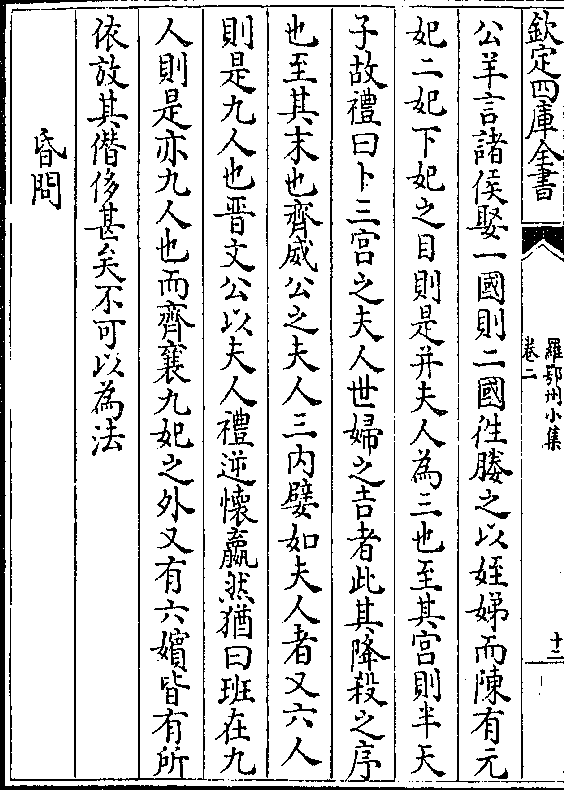 欽定四庫全書
羅鄂州小集
卷二
十二
公羊言諸侯娶一國則二國徃媵之以姪娣而陳有元
妃二妃下妃之目則是并夫人為三也至其宫則半天
子故禮曰卜三宫之夫人世婦之吉者此其降殺之序
也至其末也齊威公之夫人三内嬖如夫人者又六人
則是九人也晋文公以夫人禮逆懷嬴然猶曰班在九
人則是亦九人也而齊襄九妃之外又有六嬪皆有所
依放其僣侈甚矣不可以為法
昏問